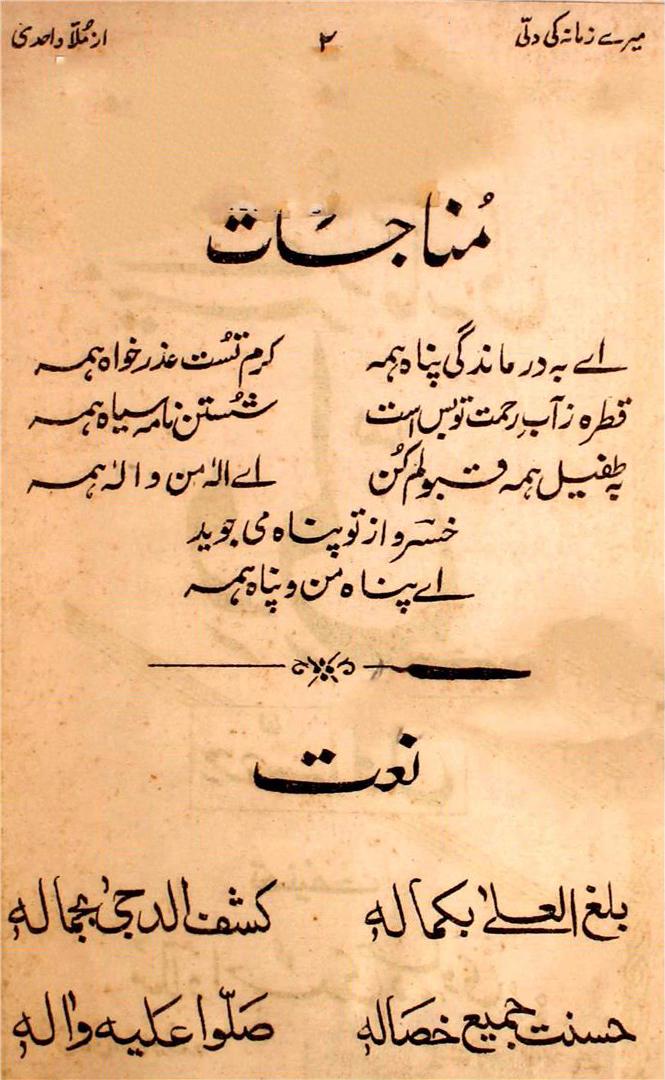 میرے زمانہ کی دلّی ۲ از مُلّا واحدی
مُناجات
اے بہ درماندگی پناہ ہمہ کرم تسُت عذر خواہ ہمہ
قطرہ ز آبِ رحمت تو بس است شُستن نامہ سیاہ ہمہ
بہ طفیل ہمہ قبولم کُن اے الٰہ من و الٰہ ہمہ
خسرو از تو پناہ می جوید
اے پناہ من و پناہ ہمہ
نعت
بلغ العلےٰ بکمالہٖ کشف الدجیٰ بجمالہٖ
حسنت جمیع خصالہٖ صلّوا علیہ واٰلہٖ